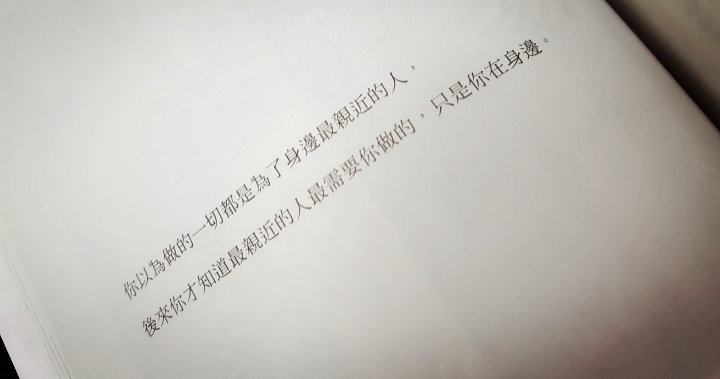 你以為做的一切都是為了身邊最親近的人，
後來你才知道最親近的人最需要你做的，只是你在身邊。